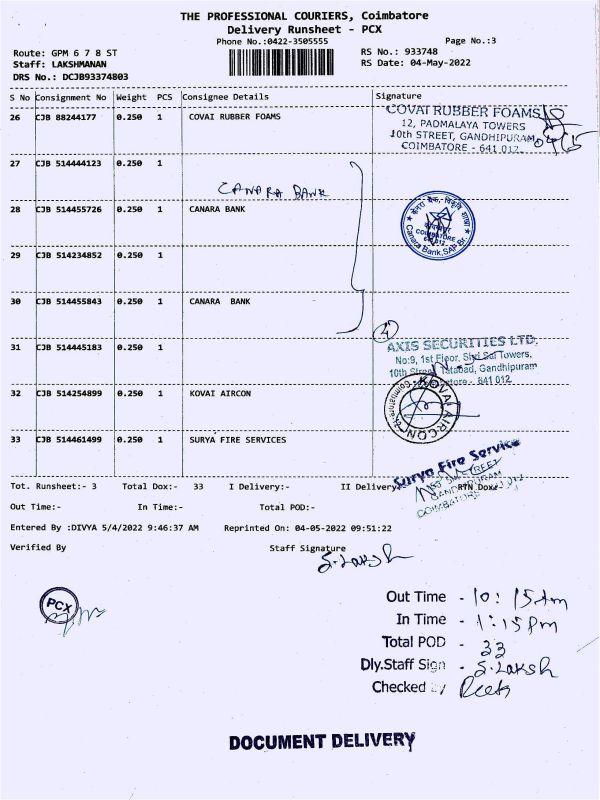 THE PROFESSIONAL COURIERS, Coimbatore
Delivery Runsheet - PCX
Phone No.:0422-3505555
Page No.:3
Route: GPM 6 7 8 ST
RS No.: 933748
Staff: LAKSHMANAN
RS Date: 04-May-2022
DRS No.: DCJB93374803
S No Consignment No Weight PCS Consignee Details Signature
26 CJB 88244177 0.250 1 COVAI RUBBER FOAMS
COVAI RUBBER FOAMS
12, PADMALAYA TOWERS
10th STREET, GANDHIPURAM
COIMBATORE - 641 012.
27 CJB 514444123 0.250 1
CANARA BANK
28 CJB 514455726 0.250 1 CANARA BANK
COIMBATORE
Canara Bank, SAF Br.
29 CJB 514234852 0.250 1
30 CJB 514455843 0.250 1 CANARA BANK
4
31 CJB 514445183 0.250 1
AXIS SECURITIES LTD.
No:9, 1st Floor, Shri Sai Towers,
10th Street, Tatabad, Gandhipuram
641 012.
32 CJB 514254899 0.250 1 KOVAI AIRCON
KOVAI AIRCON
33 CJB 514461499 0.250 1 SURYA FIRE SERVICES
Surya Fire Service
STREET
GANDHIPURAM
COIMBATORE
Tot. Runsheet:- 3 Total Dox:- 33 I Delivery:- II Delivery RTN Dox:-
Out Time:- In Time:- Total POD:-
Entered By :DIVYA 5/4/2022 9:46:37 AM Reprinted On: 04-05-2022 09:51:22
Verified By Staff Signature
S. Laksh
PCX
Out Time - 10:15Am
In Time - 1:15pm
Total POD - 33
Dly.Staff Sign - S. Laksh
Checked By
DOCUMENT DELIVERY